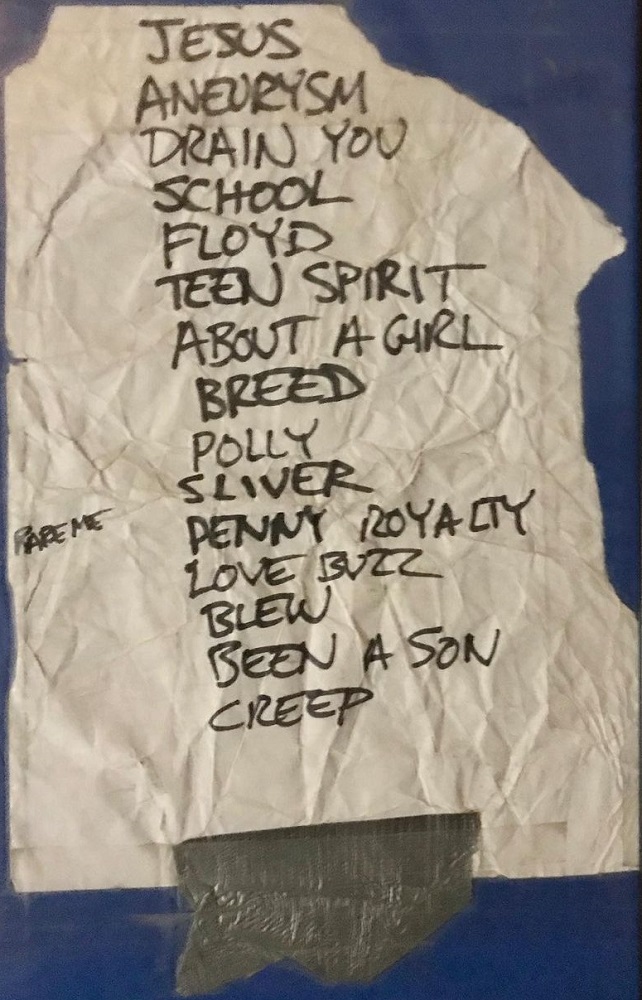 JESUS
ANEURYSM
DRAIN YOU
SCHOOL
FLOYD
TEEN SPIRIT
ABOUT A GIRL
BREED
POLLY
SLIVER
RAPE ME
PENNY ROYALTY
LOVE BUZZ
BLEW
BEEN A SON
CREEP